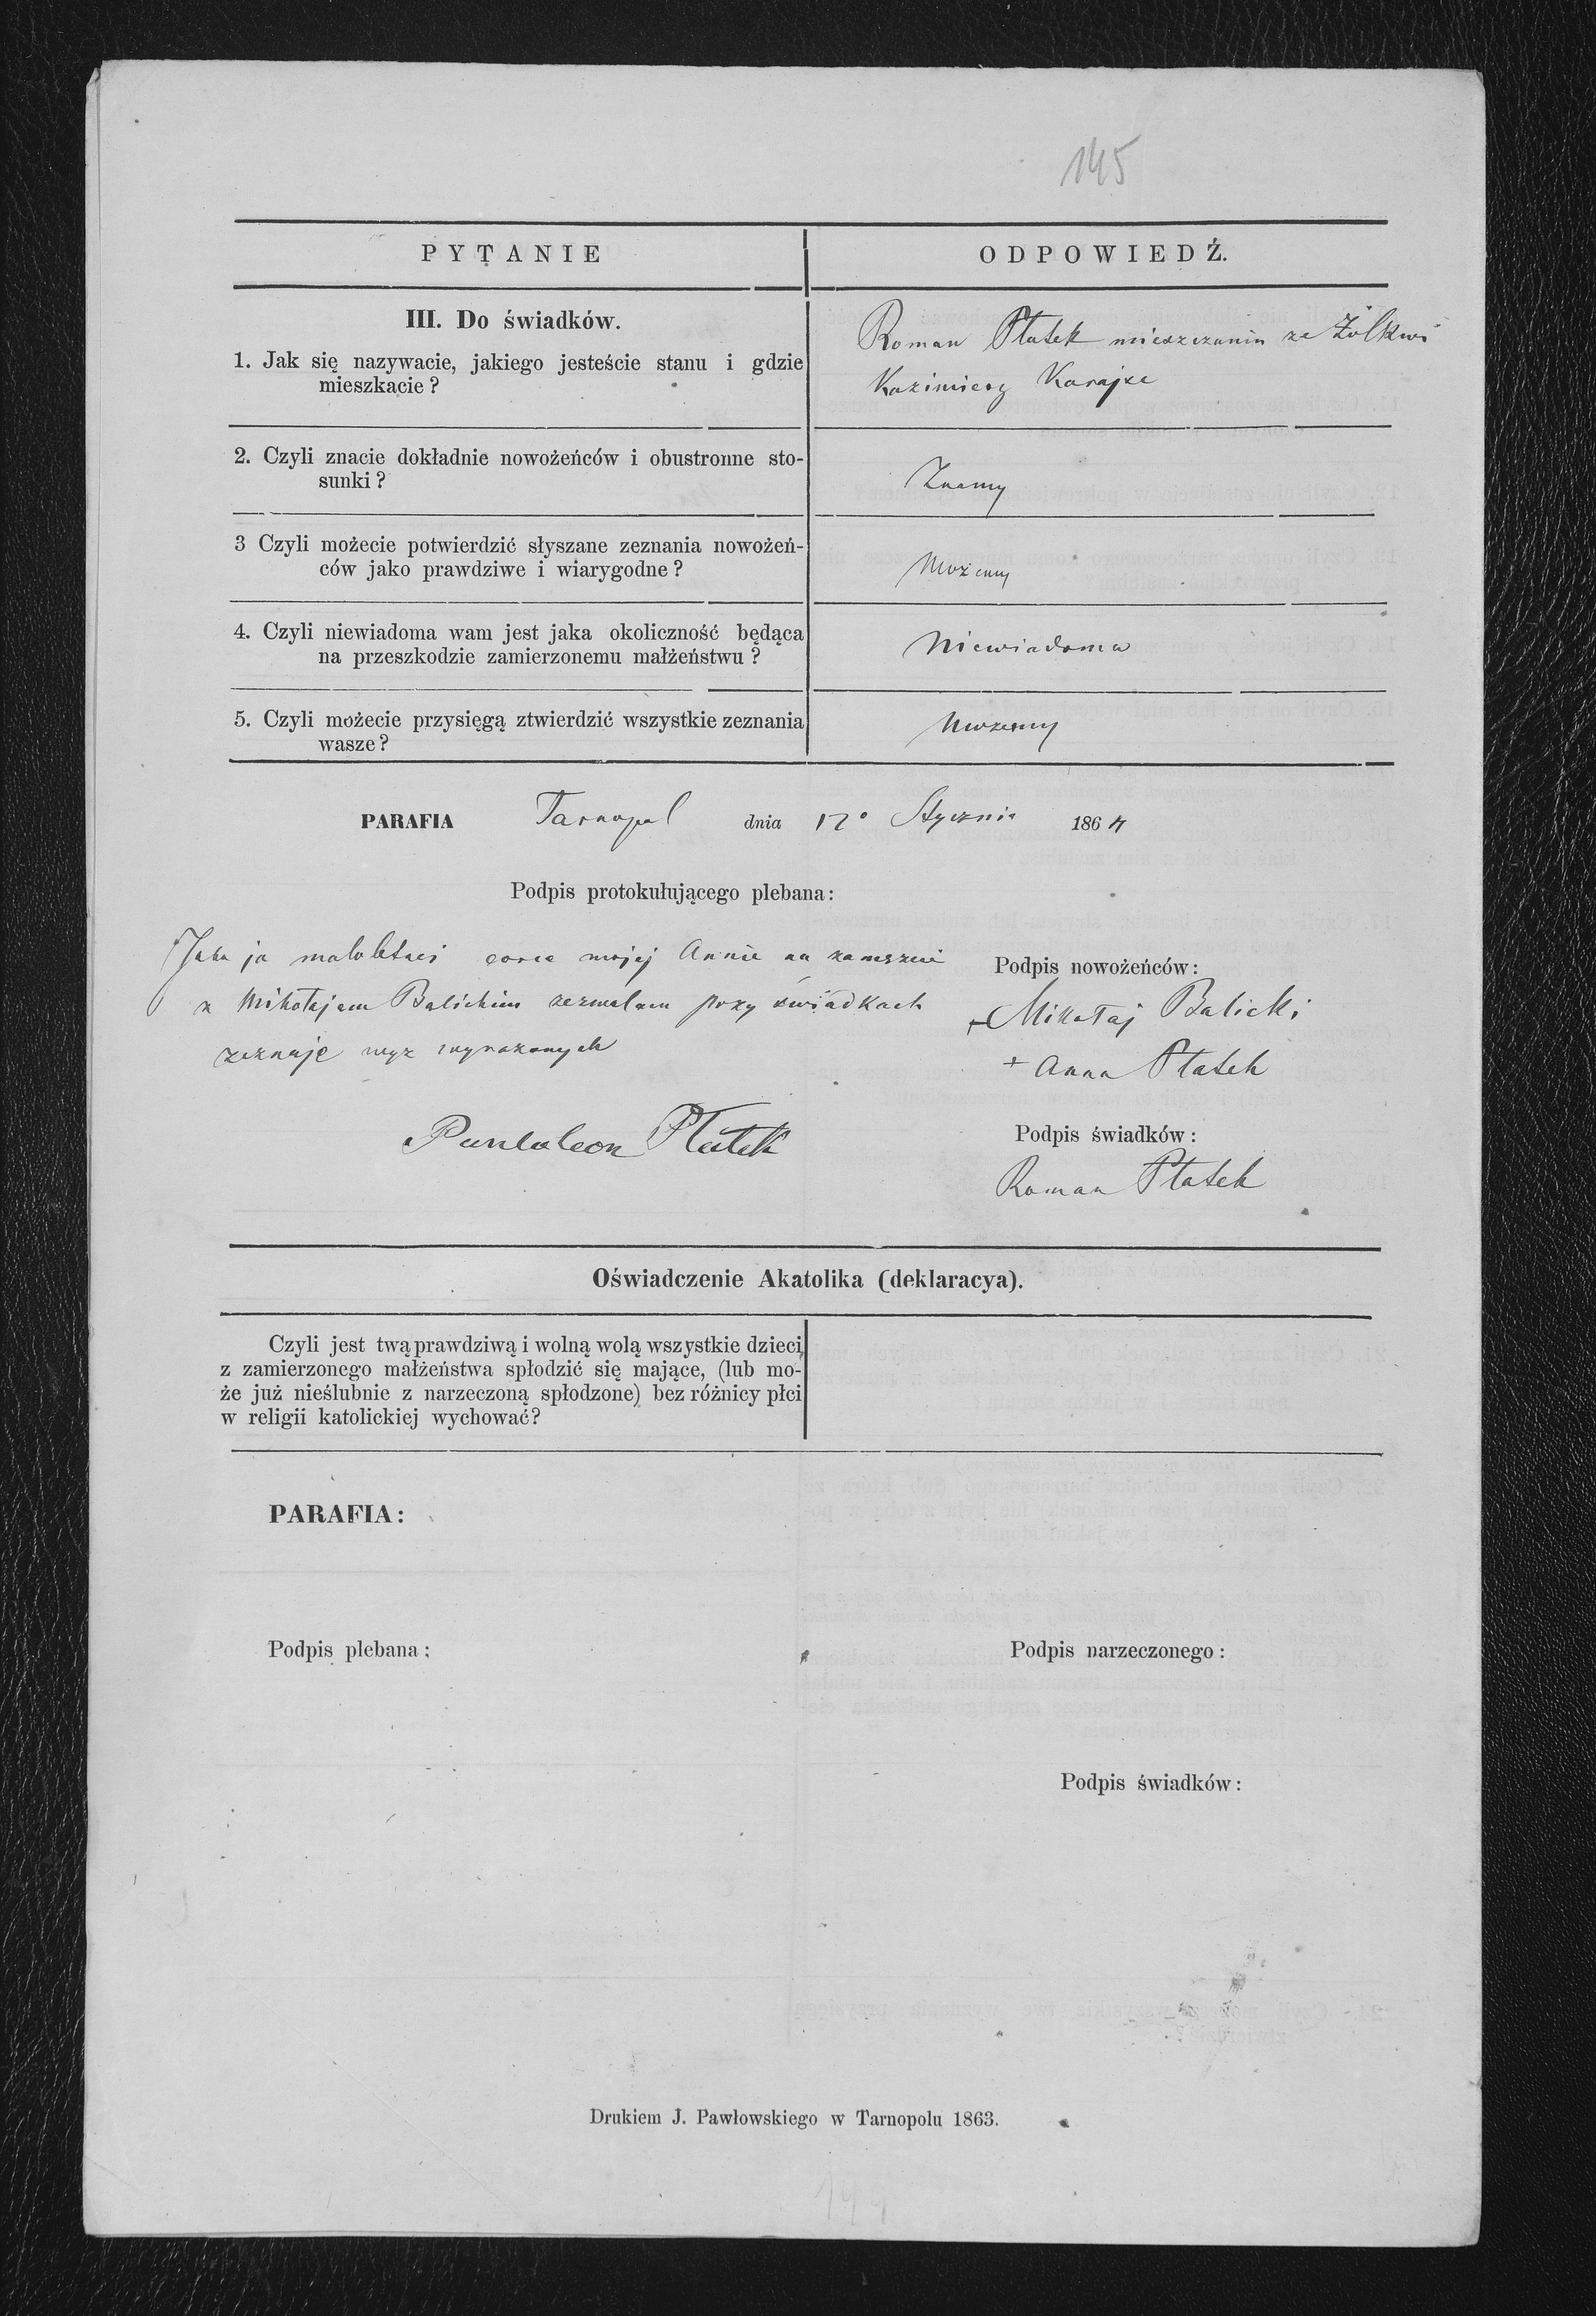 145
PYTANIE
ODPOWIEDŹ.
III. Do świadków.
1. Jak się nazywacie, jakiego jesteście stanu i gdzie
mieszkacie?
Roman Płatek mieszczanin ze Żółkwi
Kazimierz
2. Czyli znacie dokładnie nowożeńców i obustronne sto-
sunki?
Znamy
3 Czyli możecie potwierdzić słyszane zeznania nowożeń-
ców jako prawdziwe i wiarygodne?
Możemy
4. Czyli niewiadoma wam jest jaka okoliczność będąca
na przeszkodzie zamierzonemu małżeństwu?
Niewiadoma
5. Czyli możecie przysięgą ztwierdzić wszystkie zeznania
wasze?
Możemy
PARAFIA Tarnopol dnia 17° Stycznia 1864
Podpis protokułującego plebana:
ja małoletniej córce mojej Annie na zamęzcie
z Mikołajem Balickim zezwalam przy świadkach
zeznaję wyż wyrażonych
Pantaleon Płatek
Podpis nowożeńców:
+Mikołaj Balicki
+ Anna Płatek
Podpis świadków:
Roman Płatek
Oświadczenie Akatolika (deklaracya).
Czyli jest twą prawdziwą i wolną wolą wszystkie dzieci
z zamierzonego małżeństwa spłodzić się mające, (lub mo-
że już nieślubnie z narzeczoną spłodzone) bez różnicy płci
w religii katolickiej wychować?
PARAFIA:
Podpis plebana:
Podpis narzeczonego:
Podpis świadków:
Drukiem J. Pawłowskiego w Tarnopolu 1863.